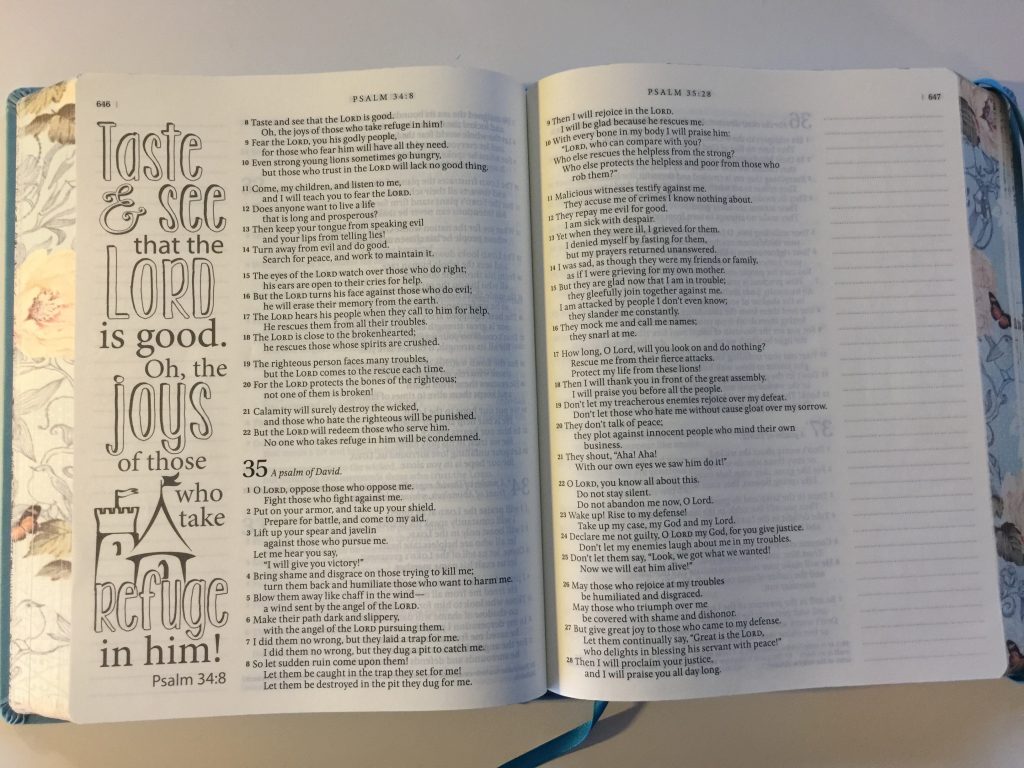 646
PSALM 34:8
Taste
& see
that the
LORD
is good.
Oh, the
joys
of those
who
take
Refuge
in him!
Psalm 34:8
8 Taste and see that the LORD is good.
Oh, the joys of those who take refuge in him!
9 Fear the LORD, you his godly people,
for those who fear him will have all they need.
10 Even strong young lions sometimes go hungry,
but those who trust in the LORD will lack no good thing.
11 Come, my children, and listen to me,
and I will teach you to fear the LORD.
12 Does anyone want to live a life
that is long and prosperous?
13 Then keep your tongue from speaking evil
and your lips from telling lies!
14 Turn away from evil and do good.
Search for peace, and work to maintain it.
15 The eyes of the LORD watch over those who do right;
his ears are open to their cries for help.
16 But the LORD turns his face against those who do evil;
he will erase their memory from the earth.
17 The LORD hears his people when they call to him for help.
He rescues them from all their troubles.
18 The LORD is close to the brokenhearted;
he rescues those whose spirits are crushed.
19 The righteous person faces many troubles,
but the LORD comes to the rescue each time.
20 For the LORD protects the bones of the righteous;
not one of them is broken!
21 Calamity will surely destroy the wicked,
and those who hate the righteous will be punished.
22 But the LORD will redeem those who serve him.
No one who takes refuge in him will be condemned.
35 A psalm of David.
1 O LORD, oppose those who oppose me.
Fight those who fight against me.
2 Put on your armor, and take up your shield.
Prepare for battle, and come to my aid.
3 Lift up your spear and javelin
against those who pursue me.
Let me hear you say,
"I will give you victory!"
4 Bring shame and disgrace on those trying to kill me;
turn them back and humiliate those who want to harm me.
5 Blow them away like chaff in the wind—
a wind sent by the angel of the LORD.
6 Make their path dark and slippery,
with the angel of the LORD pursuing them.
7 I did them no wrong, but they laid a trap for me.
I did them no wrong, but they dug a pit to catch me.
8 So let sudden ruin come upon them!
Let them be caught in the trap they set for me!
Let them be destroyed in the pit they dug for me.
PSALM 35:28
647
9 Then I will rejoice in the LORD.
I will be glad because he rescues me.
10 With every bone in my body I will praise him:
"LORD, who can compare with you?
Who else rescues the helpless from the strong?
Who else protects the helpless and poor from those who
rob them?"
11 Malicious witnesses testify against me.
They accuse me of crimes I know nothing about.
12 They repay me evil for good.
I am sick with despair.
13 Yet when they were ill, I grieved for them.
I denied myself by fasting for them,
but my prayers returned unanswered.
14 I was sad, as though they were my friends or family,
as if I were grieving for my own mother.
15 But they are glad now that I am in trouble;
they gleefully join together against me.
I am attacked by people I don't even know;
they slander me constantly.
16 They mock me and call me names;
they snarl at me.
17 How long, O Lord, will you look on and do nothing?
Rescue me from their fierce attacks.
Protect my life from these lions!
18 Then I will thank you in front of the great assembly.
I will praise you before all the people.
19 Don't let my treacherous enemies rejoice over my defeat.
Don't let those who hate me without cause gloat over my sorrow.
20 They don't talk of peace;
they plot against innocent people who mind their own
business.
21 They shout, "Aha! Aha!
With our own eyes we saw him do it!"
22 O LORD, you know all about this.
Do not stay silent.
Do not abandon me now, O Lord.
23 Wake up! Rise to my defense!
Take up my case, my God and my Lord.
24 Declare me not guilty, O LORD my God, for you give justice.
Don't let my enemies laugh about me in my troubles.
25 Don't let them say, "Look, we got what we wanted!
Now we will eat him alive!"
26 May those who rejoice at my troubles
be humiliated and disgraced.
May those who triumph over me
be covered with shame and dishonor.
27 But give great joy to those who came to my defense.
Let them continually say, "Great is the LORD,
who delights in blessing his servant with peace!"
28 Then I will proclaim your justice,
and I will praise you all day long.